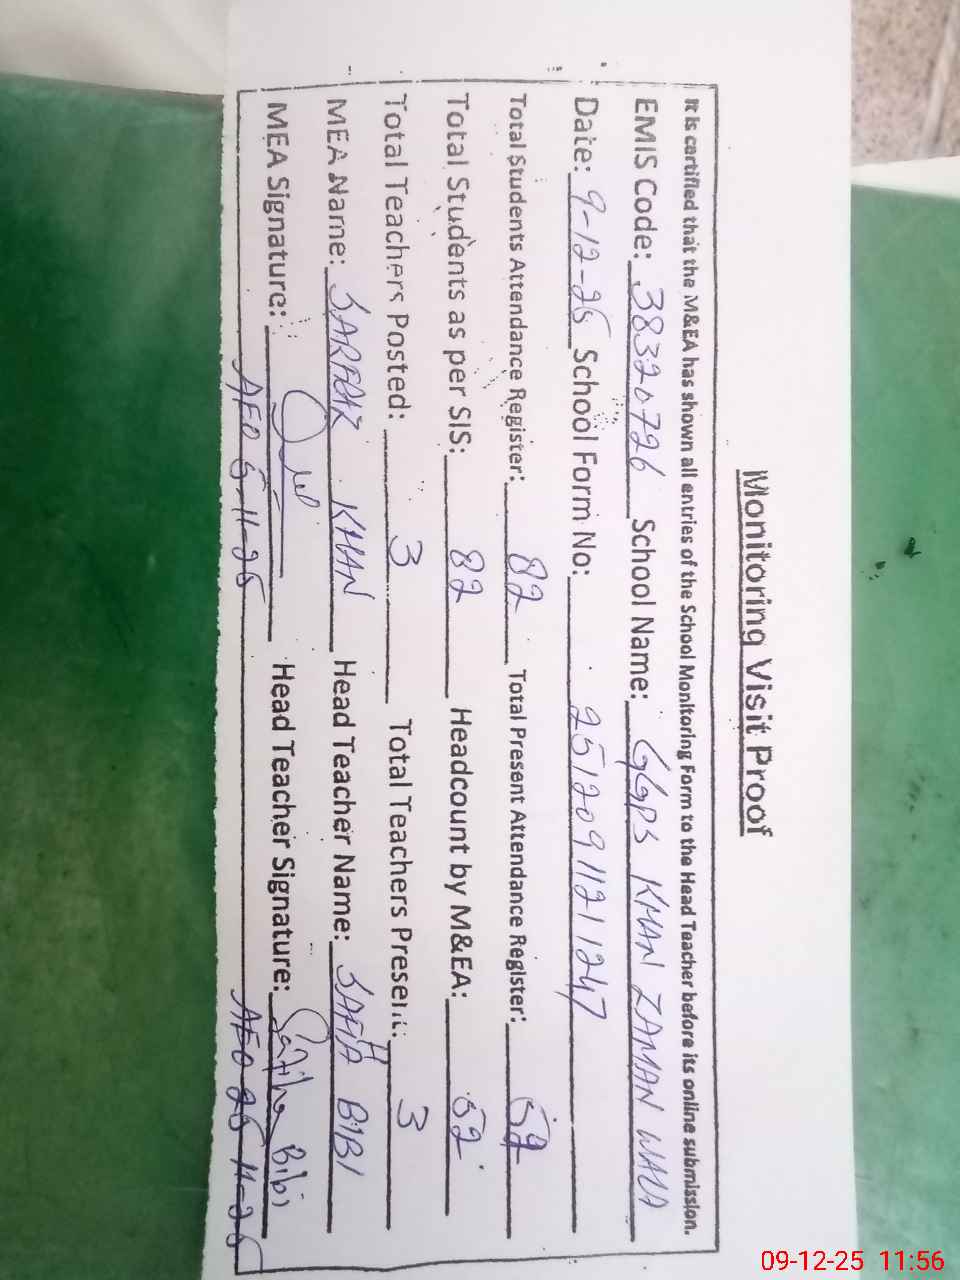 Monitoring Visit Proof
It is certified that the M&EA has shown all entries of the School Monitoring Form to the Head Teacher before its online submission.
EMIS Code: 38320726 School Name: GGPS KHAN ZAMAN WALA
Date: 9-12-25 School Form No: 25120911211247
Total Students Attendance Register: 82 Total Present Attendance Register: 52
Total Students as per SIS: 82 Headcount by M&EA: 52
Total Teachers Posted: 3 Total Teachers Present: 3
MEA Name: SARFRAZ KHAN Head Teacher Name: SAFIA BIBI
MEA Signature: Head Teacher Signature: Bibi
AEO 6-11-25 AEO 26-11-25
09-12-25 11:56